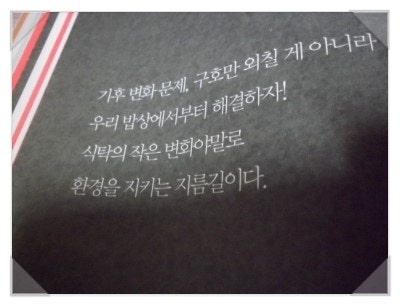 기후 변화 문제, 구호만 외칠 게 아니라
우리 밥상에서부터 해결하자!
식탁의 작은 변화야말로
환경을 지키는 지름길이다.